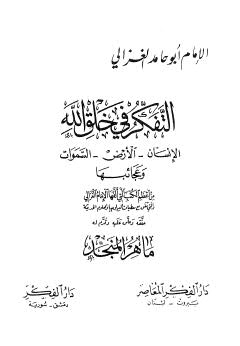 الإمام أبو حامد الغزالي
التفكر في خلق الله
الإنسان - الأرض - السموات
وعجائبها
من أعظم الكتب التي ألفها الإمام الغزالي
حققه وعلق عليه وقدم له
ماهر المنجد
دار الفكر المعاصر
بيروت - لبنان
دار الفكر
دمشق - سورية